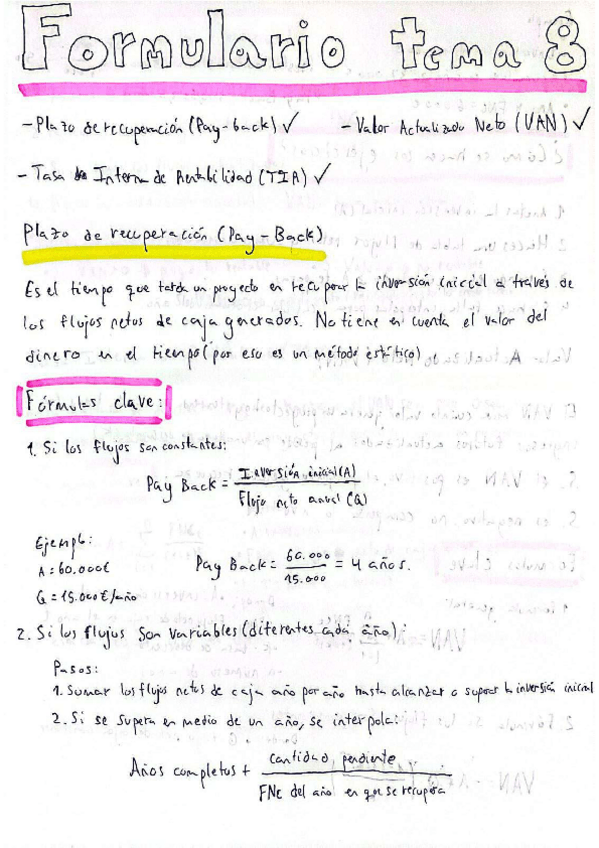 Formulario tema 8
- Plazo de recuperación (Pay-back) ✓ - Valor Actualizado Neto (VAN) ✓
- Tasa de Interna de Rentabilidad (TIR) ✓
Plazo de recuperación (Pay-Back)
Es el tiempo que tarda un proyecto en recuperar la inversión inicial a través de
los flujos netos de caja generados. No tiene en cuenta el valor del
dinero en el tiempo (por eso es un método estático)
Fórmulas clave:
1. Si los flujos son constantes:
Pay Back = Inversión inicial (A) / Flujo neto anual (Q)
Ejemplo:
A = 60.000€ Pay Back = 60.000 / 15.000 = 4 años.
Q = 15.000€/año
2. Si los flujos son variables (diferentes cada año):
Pasos:
1. Sumar los flujos netos de caja año por año hasta alcanzar o superar la inversión inicial
2. Si se supera en medio de un año, se interpola:
Años completos + cantidad pendiente / FNC del año en que se recupera